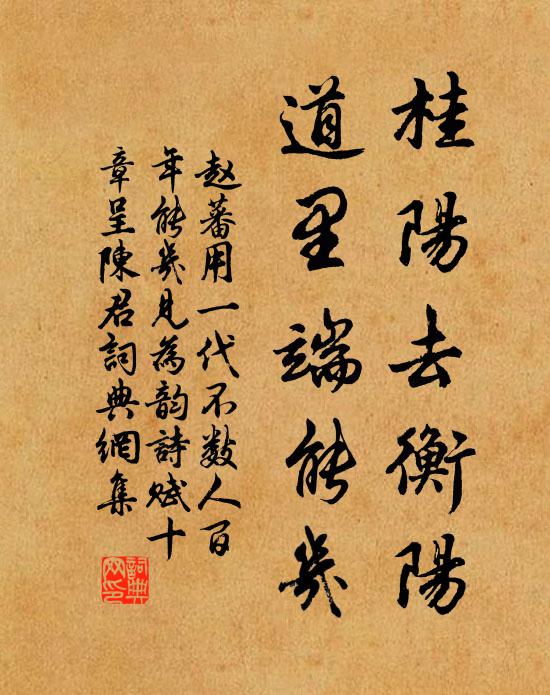 桂陽去衡陽
道里端能幾
赵蕃用一代不数人百
年能幾見為韵詩赋十
章呈陳君詞典網集
詞典
网印